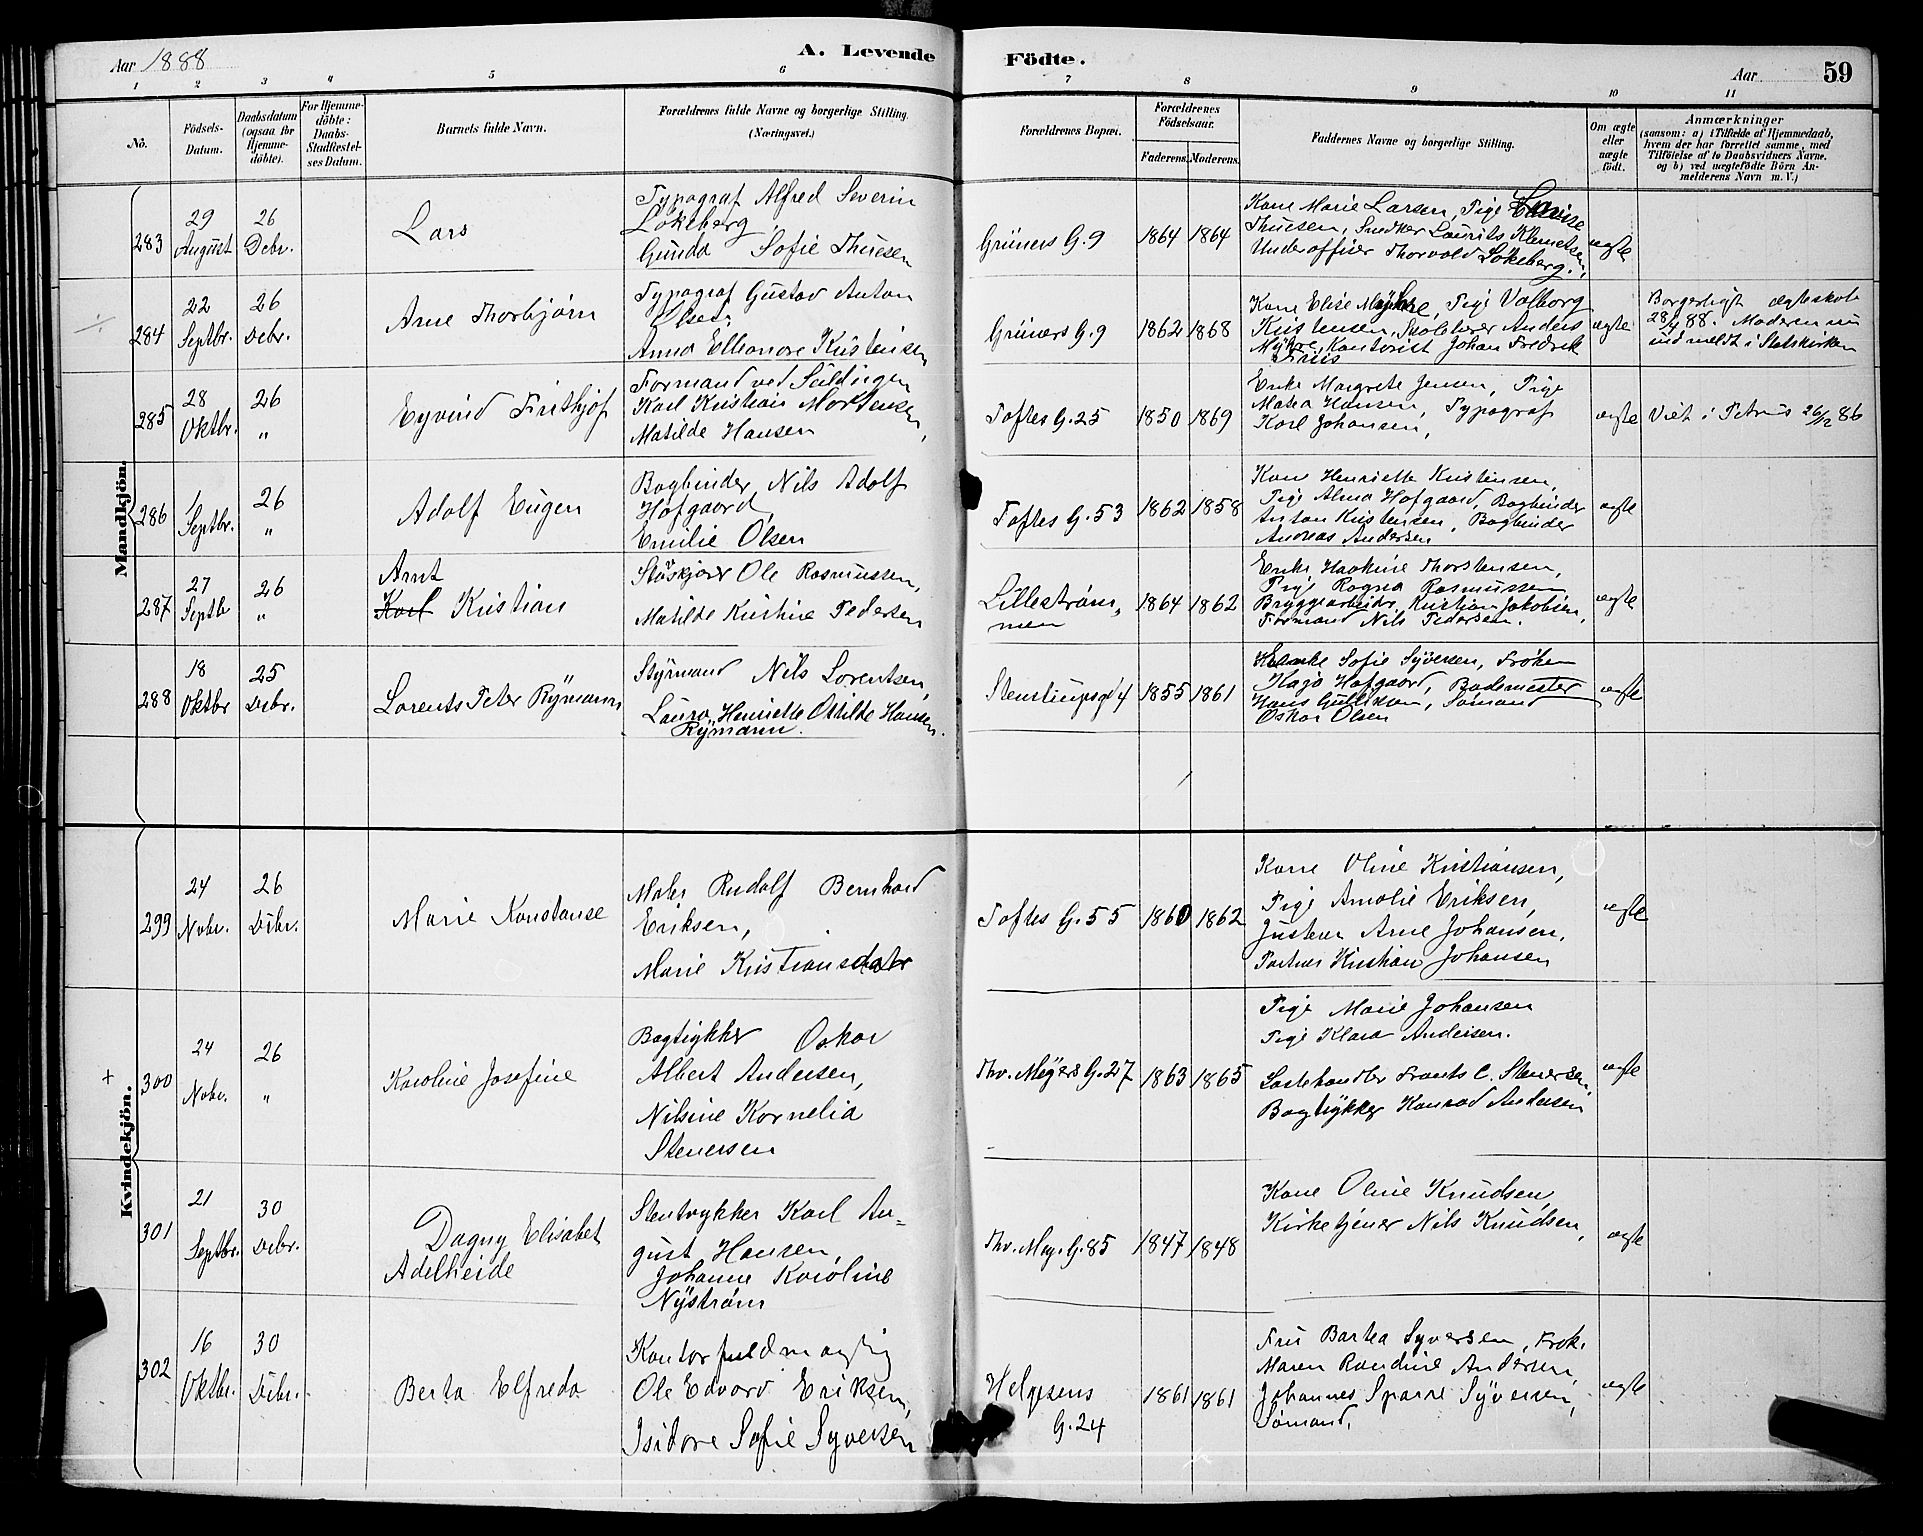 Aar 1888
A. Levende
Födte.
Aar
59
1 2 3 4 5 6 7 8 9 10 11
No.
Födsels-Datum.
Daabsdatum (ogsaa for Hjemme-döbte).
For Hjemme-döbte: Daabs-Stadfæstel-ses Datum.
Barnets fulde Navn.
Forældrenes fulde Navne og borgerlige Stilling.
(Næringsvei.)
Forældrenes Bopæl.
Forældrenes Födselsaar.
Faderens. Moderens.
Faddernes Navne og borgerlige Stilling.
Om ægte eller uægte födt.
Anmærkninger
(saasom: a) i Tilfælde af Hjemmedaab, hvem der har forrettet samme, med Tilföielse af to Daabsvidners Navne. og b) ved uægtefödte Börn An-melderens Navn m. V.)
Mandkjön.
283
29 August
26 Debr.
Lars
Typograf Alfred Severin
Lökeberg,
Gunda Sofie Thuesen
Grüners G. 9
1864 1864
Kone Marie Larsen, Pige Lovise
Thuesen, Snedker Laurits Klemetsen,
Underofficer Thorvald Lökeberg.
ægte
284
22 Septbr.
26 Debr.
Arne Thorbjörn
Typograf Gustav Anton
Olsen,
Anna Elleonore Kristensen
Grüners G. 9
1862 1868
Kone Elise Myhre, Pige Valborg
Kristensen, Skolelærer Anders
Myhre, Kontorist Johan Fredrik
Friis
ægte
Borgerligt ægteskab
28/4 88. Moderen nu
indmeldt i Statskirken
285
28 Oktbr.
26 "
Eyvind Fritthjof
Formand ved Sildingen
Karl Kristian Mortensen,
Matilde Hansen
Toftes G. 25
1850 1869
Enke Margrete Jensen, Pige
Matea Hansen, Typograf
Karl Johansen,
ægte
Viet i Petrus 26/12 86
286
1 Septbr.
26 "
Adolf Eugen
Bogbinder Nils Adolf
Hofgaard,
Emilie Olsen
Toftes G. 53
1862 1858
Kone Henriette Kristensen,
Pige Alma Hofgaard, Bogbinder
Anton Kristensen, Bogbinder
Andreas Andersen
ægte
287
27 Septbr
26 "
Arnt
Karl Kristian
Ole Rasmussen,
Matilde Kristine Pedersen
Lillestrøm,
1864 1862
Enke Haakine Thorstensen,
Pige Ragna Rasmussen
Bryggearbeider Kristian Jakobsen,
Formand Nils Pedersen.
ægte
288
18 Oktbr
25 Debr.
Lorents Peter Rymann
Styrmand Nils Lorentsen,
Laura Henriette Otilde Hansen
Rymann.
Stenstrupsgd 4
1855 1861
Enke Sofie Syversen, Fröken
Kaja Hofgaard, Bademester
Hans Gulliksen, Sömand
Oskar Olsen
ægte
Kvindekjön.
299
24 Nobr.
26 Debr.
Marie Konstanse
Maler Rudolf Bernhard
Eriksen,
Marie Kristiansdatr
Toftes G. 55
1860 1862
Kone Oline Kristiansen,
Pige Amalie Eriksen,
Arne Johansen,
Kristian Johansen
ægte
+
300
24 Nobr.
26 "
Karoline Josefine
Bogtrykker Oskar
Albert Andersen,
Nilsine Kornelia
Stenersen
Thv. Meyers G. 27
1863 1865
Pige Marie Johansen
Pige Klara Andersen.
Lastehandler Frants C. Stenersen,
Bogtrykker Konrad Andersen
ægte
301
21 Septbr.
30 Debr.
Dagny Elisabet
Adelheide
Stentrykker Karl Au-
gust Hansen,
Johanne Karoline
Nyström
Thv. Mey. G. 85
1847 1848
Kone Oline Knudsen,
Kirketjener Nils Knudsen,
ægte
302
16 Oktbr.
30 Debr.
Berta Elfreda
Kontorfuldmægtig
Ole Edvard Eriksen,
Isidore Sofie Syversen
Helgesens
G. 24
1861 1861
Fru Bartea Syversen, Frök.
Maren Randine Andersen,
Johannes Sparre Syversen,
Sömand,
ægte